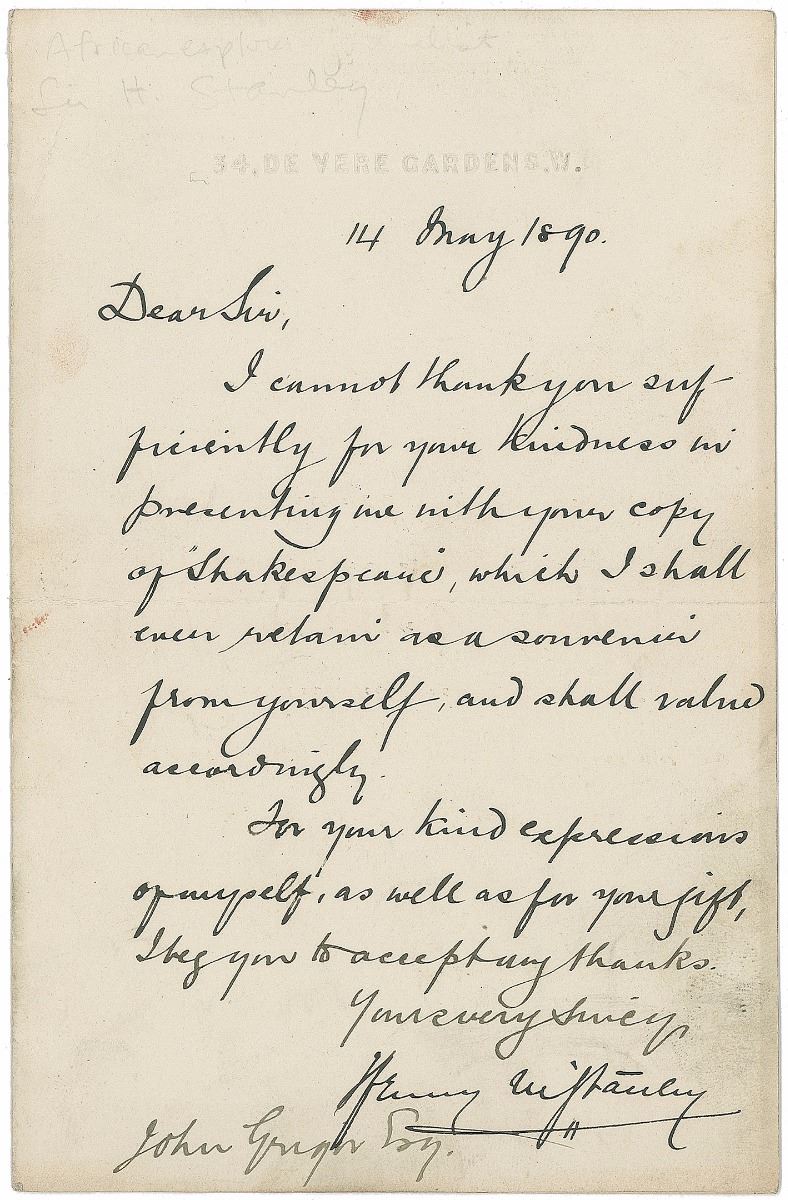 African explorer & journalist
Sir H. Stanley
34, DE VERE GARDENS, W.
14 May 1890.
Dear Sir,
I cannot thank you suf-
ficiently for your kindness in
presenting me with your copy
of "Shakespeare", which I shall
ever retain as a souvenir
from yourself, and shall value
accordingly.
For your kind expressions
of myself, as well as for your gift,
I beg you to accept my thanks.
Yours very Sincly,
Henry M Stanley
John Grigor Esq.